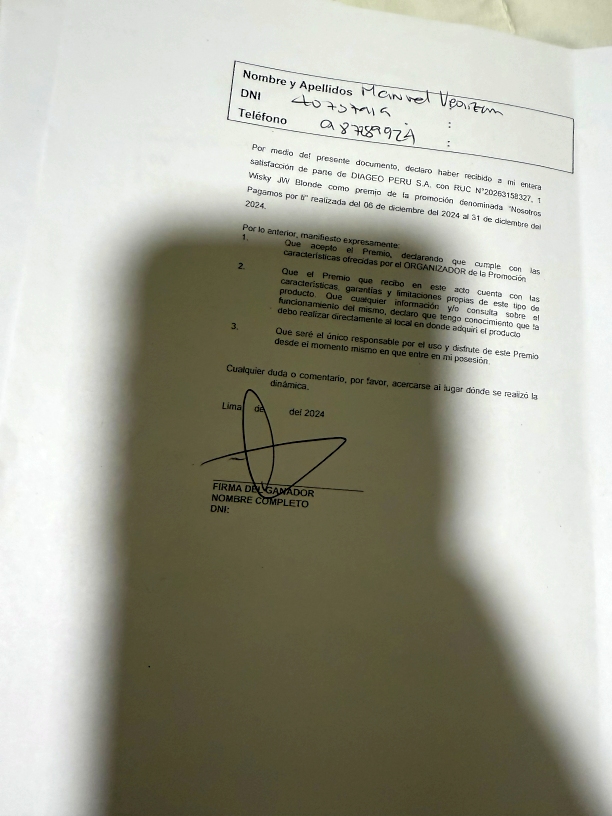 Nombre y Apellidos Manuel
DNI :
Teléfono :
Por medio del presente documento, declaro haber recibido a mi entera
satisfacción de parte de DIAGEO PERU S.A. con RUC N°20263158327, 1
Wisky JW Blonde como premio de la promoción denominada "Nosotros
Pagamos por ti" realizada del 06 de diciembre del 2024 al 31 de diciembre del
2024.
Por lo anterior, manifiesto expresamente:
1. Que acepto el Premio, declarando que cumple con las
características ofrecidas por el ORGANIZADOR de la Promoción
2. Que el Premio que recibo en este acto cuenta con las
características, garantías y limitaciones propias de este tipo de
producto. Que cualquier información y/o consulta sobre el
funcionamiento del mismo, declaro que tengo conocimiento que la
debo realizar directamente al local en donde adquirí el producto
3. Que seré el único responsable por el uso y disfrute de este Premio
desde el momento mismo en que entre en mi posesión.
Cualquier duda o comentario, por favor, acercarse al lugar dónde se realizó la
dinámica.
Lima de del 2024
FIRMA DEL GANADOR
NOMBRE COMPLETO
DNI: